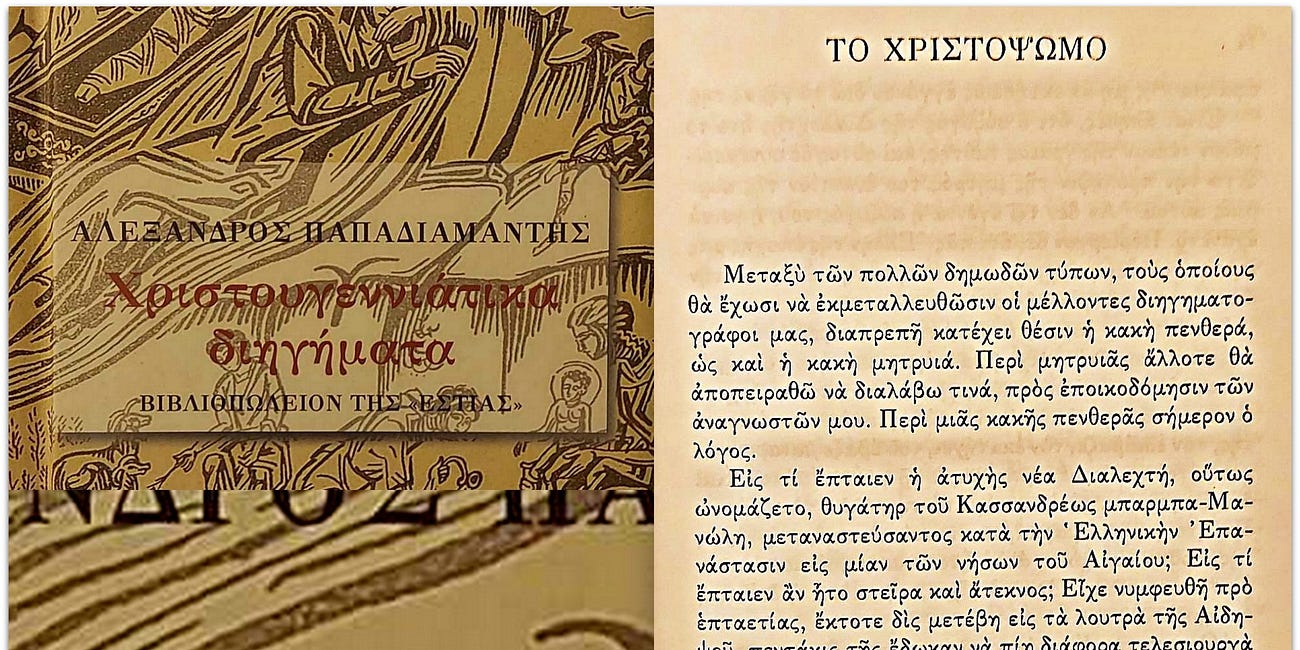 ΑΛΕΞΑΝΔΡΟΣ ΠΑΠΑΔΙΑΜΑΝΤΗΣ
Χριστουγεννιάτικα
διηγήματα
ΒΙΒΛΙΟΠΩΛΕΙΟΝ ΤΗΣ «ΕΣΤΙΑΣ»
ΝΔΡΟΣ ΠΑ
ΤΟ ΧΡΙΣΤΟΨΩΜΟ
Μεταξὺ τῶν πολλῶν δημωδῶν τύπων, τοὺς ὁποίους
θὰ ἔχωσι νὰ ἐκμεταλλευθῶσιν οἱ μέλλοντες διηγηματο-
γράφοι μας, διαπρεπῆ κατέχει θέσιν ἡ κακὴ πενθερά,
ὡς καὶ ἡ κακὴ μητρυιά. Περὶ μητρυιᾶς ἄλλοτε θὰ
ἀποπειραθῶ νὰ διαλάβω τινά, πρὸς ἐποικοδόμησιν τῶν
ἀναγνωστῶν μου. Περὶ μιᾶς κακῆς πενθερᾶς σήμερον ὁ
λόγος.
Εἰς τί ἔπταιεν ἡ ἀτυχὴς νέα Διαλεχτή, οὕτως
ὠνομάζετο, θυγάτηρ τοῦ Κασσανδρέως μπαρμπα-Μα-
νώλη, μεταναστεύσαντος κατὰ τὴν Ἑλληνικὴν Ἐπα-
νάστασιν εἰς μίαν τῶν νήσων τοῦ Αἰγαίου; Εἰς τί
ἔπταιεν ἂν ἦτο στεῖρα καὶ ἄτεκνος; Εἶχε νυμφευθῆ πρὸ
ἑπταετίας, ἔκτοτε δὶς μετέβη εἰς τὰ λουτρὰ τῆς Αἰδη-
ψοῦ, πεντάκις τῆς ἔδωκαν νὰ πίῃ διάφορα τελεσιουργὰ